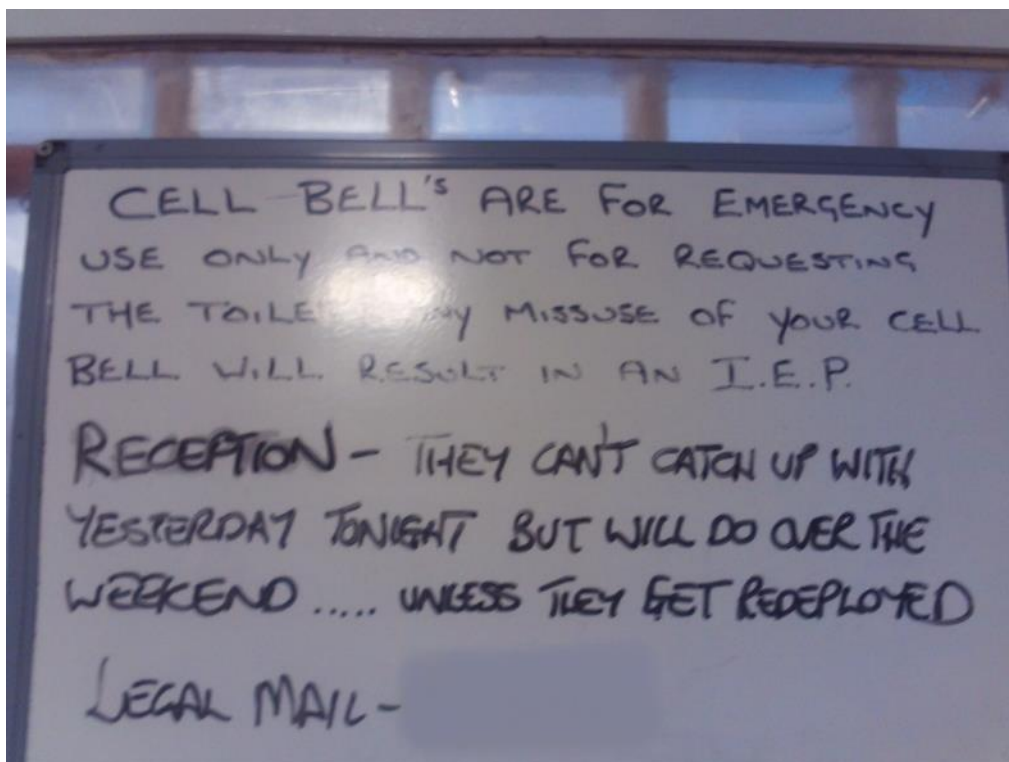 CELL BELL'S ARE FOR EMERGENCY
USE ONLY AND NOT FOR REQUESTING
THE TOILET ANY MISSUSE OF YOUR CELL
BELL WILL RESULT IN AN I.E.P.
RECEPTION - THEY CAN'T CATCH UP WITH
YESTERDAY TONIGHT BUT WILL DO OVER THE
WEEKEND ..... UNLESS THEY GET REDEPLOYED
LEGAL MAIL -